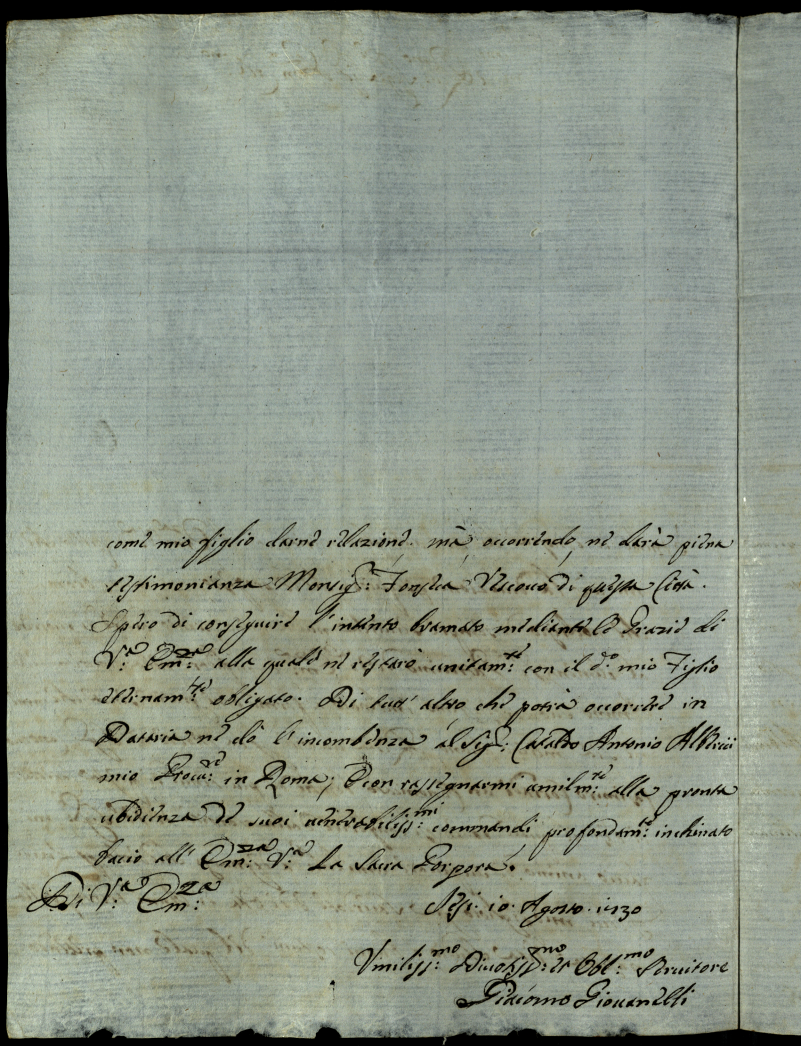 come mio figlio darne relazione. mà, occorrendo, ne darà piena
testimonianza Monsig.r Fonseca Vescovo di questa Città.
Spero di conseguire l'intento bramato mediante le Grazie di
V.a Em.za alla quale ne restarò unitam.te con il d.o mio Figlio
eternam.te obligato. Di tutt'altro che potrà occorrere in
Dataria ne dò l'incombenza al Sig.r Cataldo Antonio
mio Procu.re in Roma; E con rassegnarmi umilm.te alla pronta
ubidienza de suoi veneratiss.mi commandi profondam.te inchinato
bacio all' Em.za V.a La Sacra Porpora.
Di V.a Em.za
Jesi. 10. Agosto. 1730
Vmiliss.mo Divotiss.mo et Obl.mo Servitore
Giacomo Giovanelli